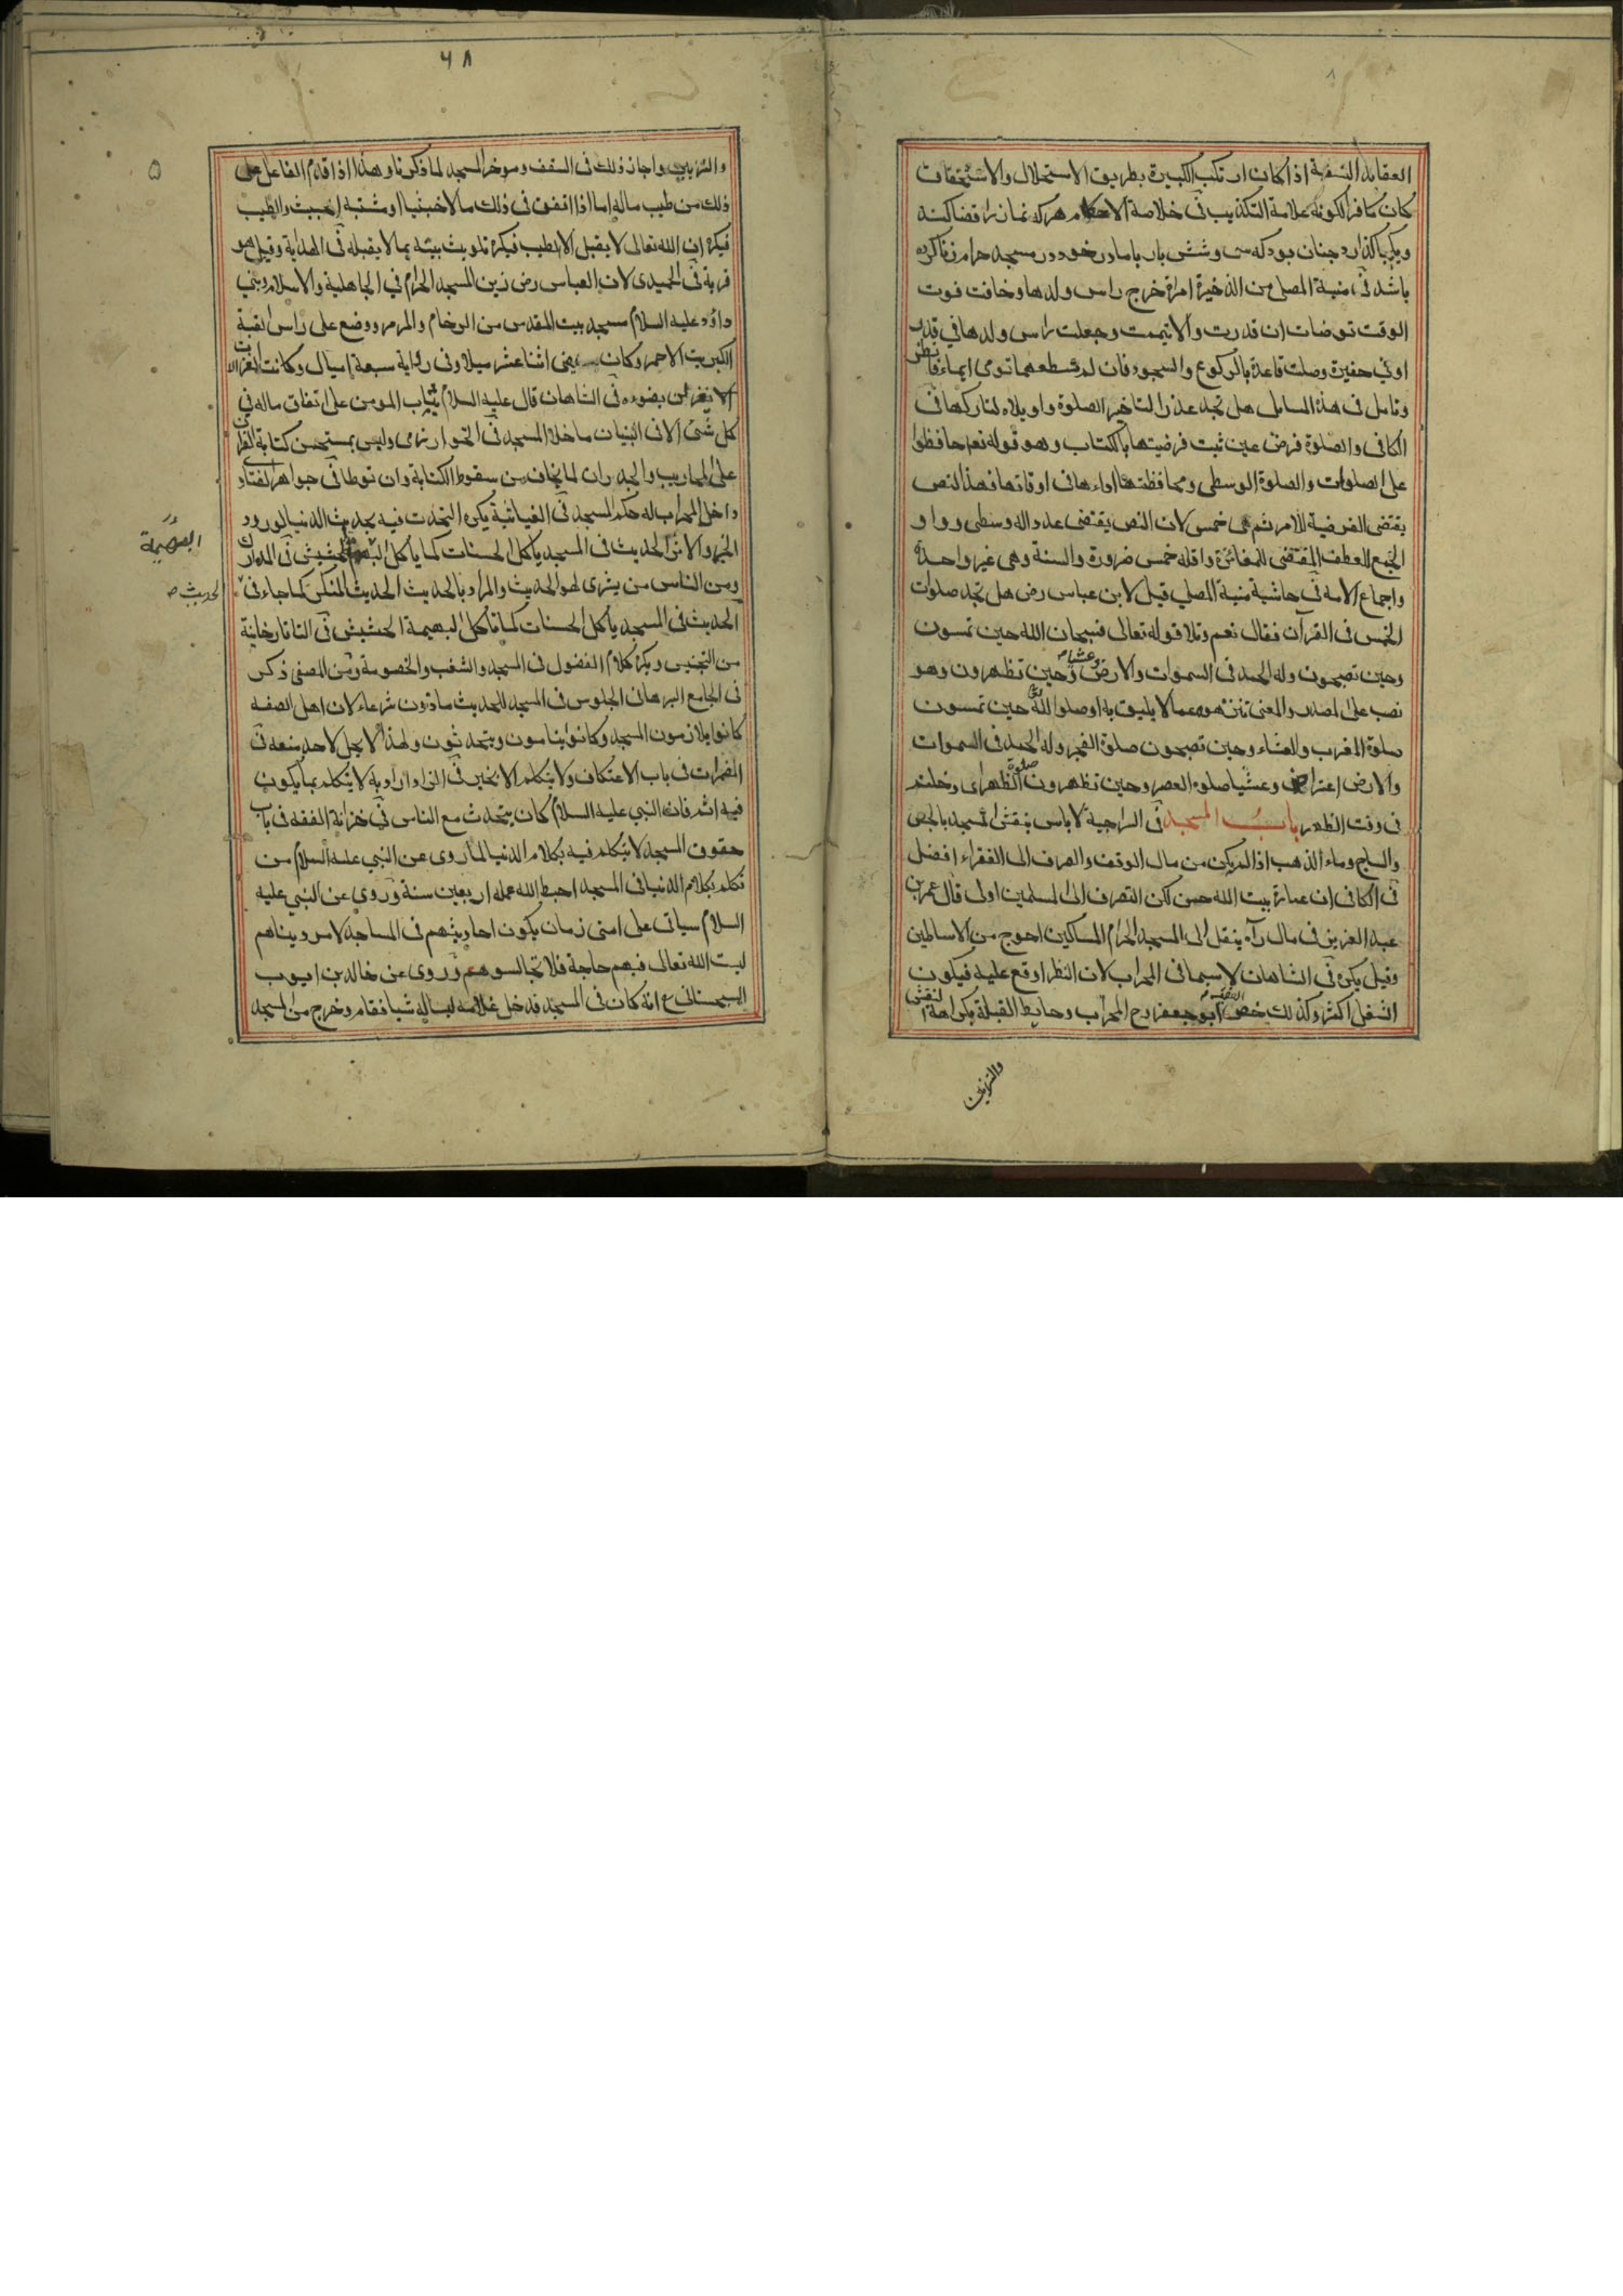 العقايد النسفية اذا كان ارتكب الكبيرة بطريق الاستحلال والاستخفاف
كان كافرا لكونه علامة التكذيب فى خلاصة الاحكام هركه نماز را قضا كند
باشد فى منية المصلى من الذخيرة امراة خرج راس ولدها وخافت فوت
الوقت توضات ان قدرت والا تيممت وجعلت راس ولدها فى قدر
او فى حفيرة وصلت قاعدة بالركوع والسجود فان لم تستطعهما تومى ايماء فانظر
وتامل فى هذه المسايل هل تجد عذرا لتاخير الصلوة واويلاه لتاركها فى
الكافى والصلوة فرض عين ثبت فرضيتها بالكتاب وهو قوله تعم حافظوا
على الصلوات والصلوة الوسطى ومحافظتها اداءها فى اوقاتها فهذا النص
يقتضى الفرضية للامر ثم هى خمس لان النص يقتضى عددا له وسطى وواو
الجمع للعطف المقتضى للمغائرة واقله خمس ضرورة والسنة وهى غير واحدة
واجماع الامة فى حاشية منية المصلي قيل لابن عباس رض هل تجد صلوات
الخمس فى القرآن فقال نعم وتلا قوله تعالى فسبحان الله حين تمسون
وحين تصبحون وله الحمد فى السموات والارض وعشيا وحين تظهرون وهو
نصب على المصدر والمعنى نزهوه عما لا يليق به او صلوا لله حين تمسون
صلوة المغرب والعشاء وحين تصبحون صلوة الفجر وله الحمد فى السموات
والارض اعتراض وعشيا صلوة العصر وحين تظهرون صلوة الظهر اى دخلتم
فى وقت الظهر باب المسجد فى السراجية لا باس بنقش المسجد بالجص
والساج وماء الذهب اذا لم يكن من مال الوقف والصرف الى الفقراء افضل
فى الكافى ان عمارة بيت الله حسن لكن التصرف الى المسلمين اولى قال عمر بن
عبد العزيز فى مال رآه ينقل الى المسجد الحرام المساكين احوج من الاساطين
وقيل يكره فى الشاهان لا سيما فى المحراب لان النظر اوقع عليه فيكون
الشغل اكثر وكذلك خص الفقيه ابو جعفر رح المحراب وحايط القبلة بكراهة النقش
والتزيين
٦٨
والتزيين واجاز ذلك فى السقف وموخر المسجد لما ذكرنا وهذا اذا قدم الفاعل على
ذلك من طيب ماله اما اذا انفق فى ذلك مالا خبيثا او مشتبه الخبيث والطيب
فيكره ان الله تعالى لا يقبل الا الطيب فيكره تلويث بيته بما لا يقبله فى الهداية وقيل هو
قربة فى الحميدى لان العباس رض زين المسجد الحرام في الجاهلية والاسلام وبنى
داؤد عليه السلام مسجد بيت المقدس من الرخام والمرمر ووضع على راس القبة
الكبريت الاحمر وكان يضى اثنا عشر ميلا وفى رواية سبعة اميال وكانت الغزالات
يغزلن بضوءه فى الشاهان قال عليه السلام يثاب المومن على انفاق ماله في
كل شئ الا فى البنيان ما خلا المسجد فى الخوارزمى وليس بمستحسن كتابة القرآن
على المحاريب والجدران لما يخاف من سقوط الكتابة وان توطا فى جواهر الفتاوى
داخل المحراب له حكم المسجد فى الغياثية يكره التحدث فيه بحديث الدنيا لورود
الخبر والاثر الحديث فى المسجد ياكل الحسنات كما ياكل البهيمة الحشيش فى المدارك
البهيمة
ومن الناس من يشرى لهو الحديث والمراد بالحديث الحديث المنكر كما جاء فى الحديث
الحديث فى المسجد ياكل الحسنات كما تاكل البهيمة الحشيش فى التاتارخانية
من التجنيس ويكره كلام الفضول فى المسجد والشغب والخصومة ومن المصفى ذكر
فى الجامع البرهانى الجلوس فى المسجد للحديث ماذون شرعا لان اهل الصفه
كانوا يلازمون المسجد وكانوا ينامون ويتحدثون ولهذا لا يحل لاحد منعه فى
المضمرات فى باب الاعتكاف ولا يتكلم الا بخير فى الزاد اراد به لا يتكلم بما يكون
فيه اثم فان النبي عليه السلام كان يتحدث مع الناس في خزانة الفقه فى باب
حقوق المسجد لا يتكلم فيه بكلام الدنيا لما روى عن النبي عليه السلام من
تكلم بكلام الدنيا فى المسجد احبط الله عمله اربعين سنة وروى عن النبي عليه
السلام سياتى على امتى زمان يكون احاديثهم فى المساجد لامر دنياهم
ليست الله تعالى فيهم حاجة فلا تجالسوهم وروى عن خالد بن ايوب
السجستانى ع انه كان فى المسجد فدخل غلامه ليساله شيا فقام وخرج من المسجد